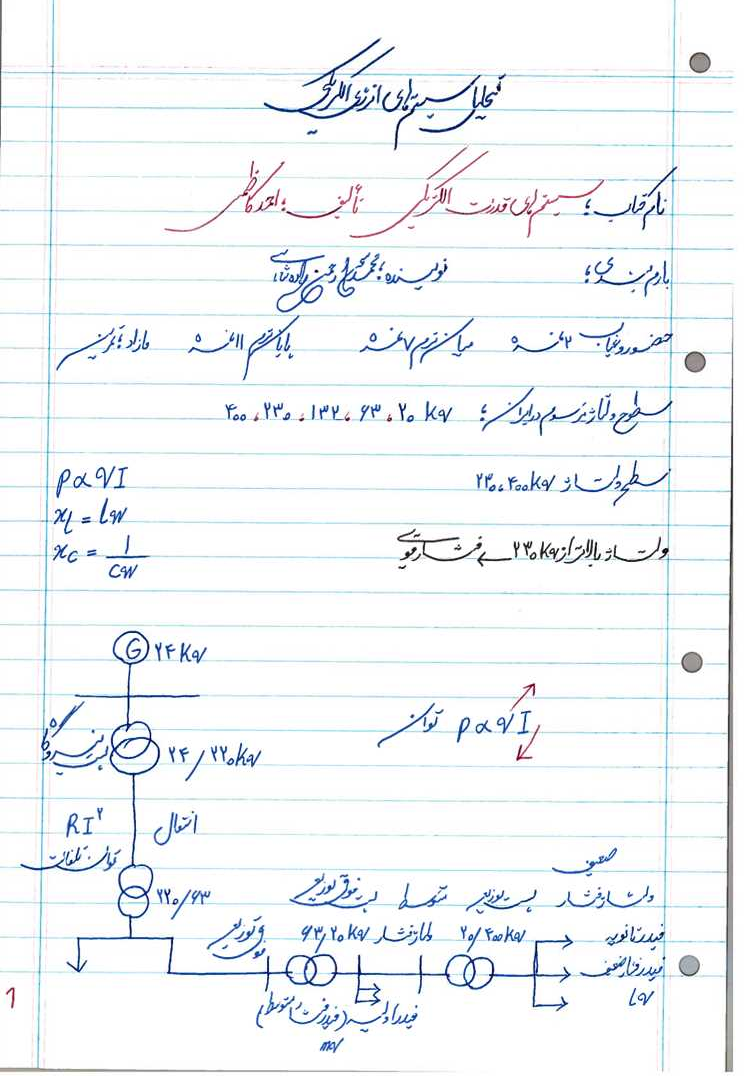 تحلیل سیستم‌های انرژی الکتریکی
نام کتاب ؛ سیستم‌های قدرت الکتریکی تألیف ؛ احد کاظمی
بارم بندی ؛ نویسنده ؛ محمد
حضور و غیاب ۲ نمره میان ترم ۷ نمره پایان ترم ۱۱ نمره مازاد ؛ تمرین
سطوح ولتاژ مرسوم در ایران ؛ ۲۰ kv ، ۶۳ ، ۱۳۲ ، ۲۳۰ ، ۴۰۰
سطح ولتاژ ۲۳۰ ، ۴۰۰ kv
P α VI
xL = Lw
xC = 1/Cw
ولتاژ بالاتر از ۲۳۰ kv ← فشار قوی
G ۲۴ kv
توان P α VI
پست نیروگاه
۲۴/۲۲۰ kv
RI² انتقال
توان تلفات
۲۲۰/۶۳
ضعیف
ولتاژ فشار پست توزیع متوسط پست فوق توزیع
فوق توزیع ۶۳/۲۰ kv ولتاژ فشار ۲۰/۴۰۰ kv
فیدر ثانویه
فیدر فشار ضعیف
LV
فیدر اولیه (فیدر فشار متوسط)
mv
1